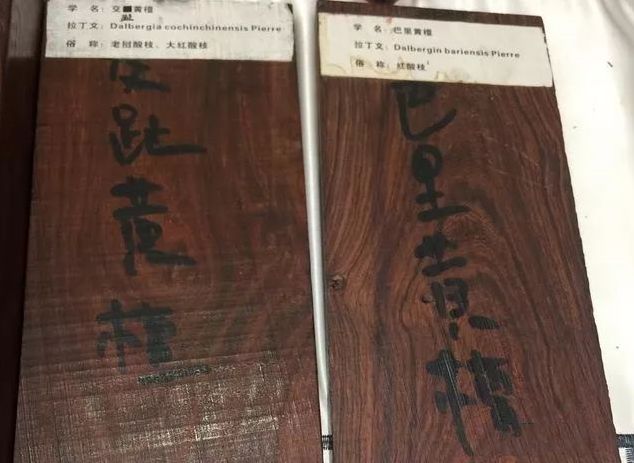 学 名: 交趾黄檀
拉丁文: Dalbergia cochinchinensis Pierre
俗 称: 老挝酸枝、大红酸枝
交
趾
黄
檀
学 名: 巴里黄檀
拉丁文: Dalbergin bariensis Pierre
俗 称: 红酸枝
巴
里
黄
檀